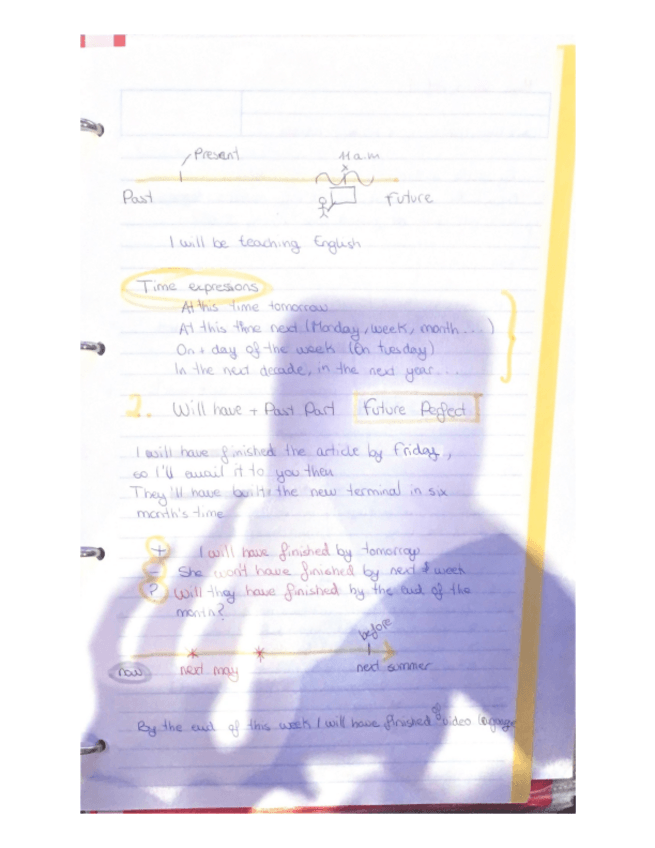 Present
11 a.m
Past
Future
I will be teaching English
Time expressions
At this time tomorrow
At this time next (Monday, week, month...)
On + day of the week (On tuesday)
In the next decade, in the next year...
2. Will have + Past Part Future Perfect
I will have finished the article by Friday,
so I'll email it to you then
They'll have built the new terminal in six
month's time
+ I will have finished by tomorrow
- She won't have finished by next week
? Will they have finished by the end of the
month?
before
now next may next summer
By the end of this week I will have finished of video